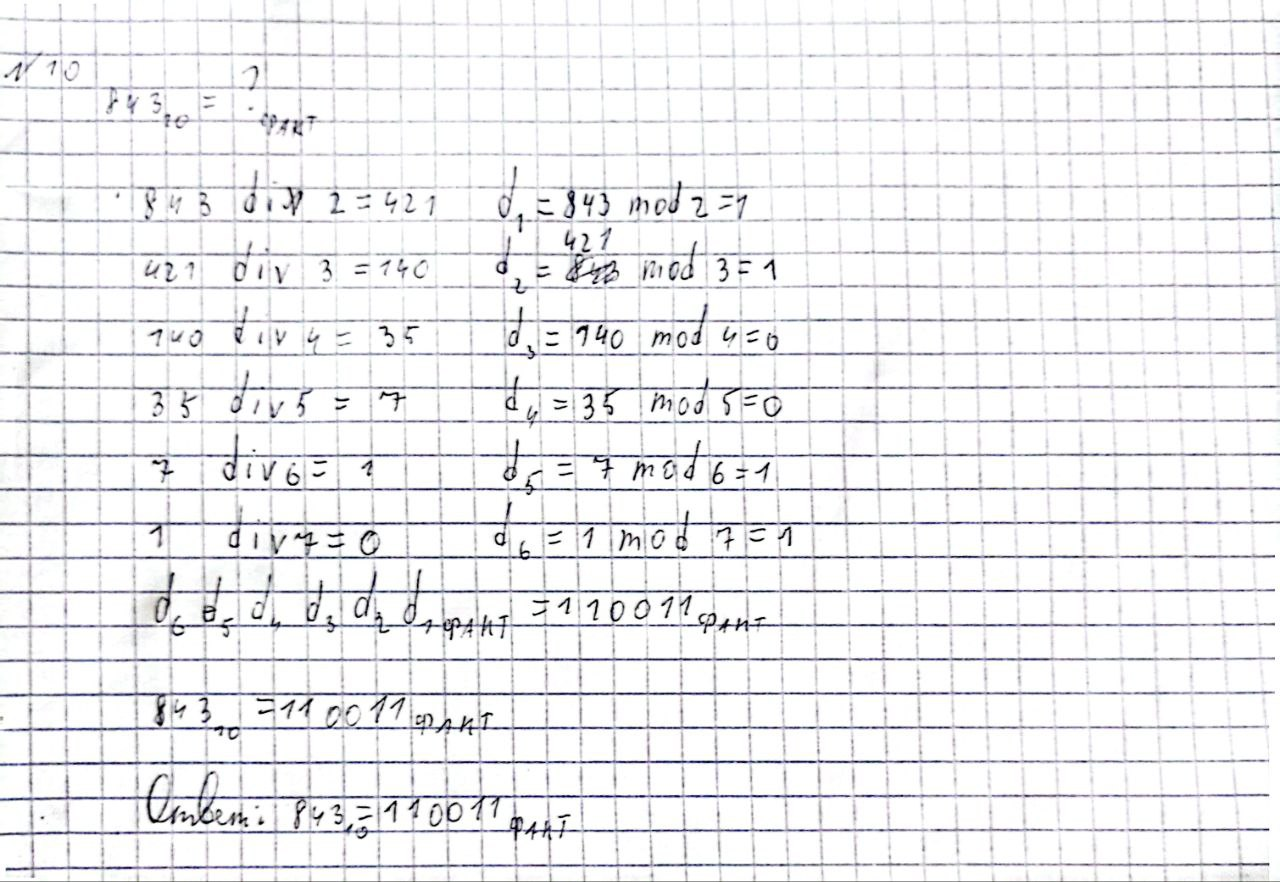 № 10
843₁₀ = ?ФАКТ
843 div 2 = 421 d₁ = 843 mod 2 = 1
421 div 3 = 140 d₂ = 421 mod 3 = 1
140 div 4 = 35 d₃ = 140 mod 4 = 0
35 div 5 = 7 d₄ = 35 mod 5 = 0
7 div 6 = 1 d₅ = 7 mod 6 = 1
1 div 7 = 0 d₆ = 1 mod 7 = 1
d₆ d₅ d₄ d₃ d₂ d₁ ФАКТ = 110011 ФАКТ
843₁₀ = 110011 ФАКТ
Ответ: 843₁₀ = 110011 ФАКТ